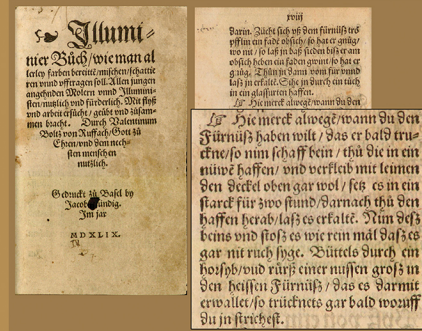 Illumi-
nier Bůch/wie man al
lerley farben bereittē/mischen/schattie
ren vnnd vfftragen soll. Allen jungen
angehnden Molern vnnd Illuminis-
sten/nutzlich und fürderlich. Mit flyß
vnd arbeit ersůcht/geübt vnd zůsam-
men bracht. Durch Valentinum
Boltz von Ruffach/Gott zů
Ehren/vnd dem nech-
sten menschen
nutzlich.
Gedruckt zů Basel by
Jacob Kundig.
Im jar
MDXLIX.
xviij
darin. Zücht sich vß dem fürnüß
ein fadē obsich/so hat er gnůg/
wo nit/so laß in baß sieden biß er am
obsich heben ein faden gwint/so hat er
gnůg. Thůn in dann vom fur vnnd
laß in erkalē. Sihe in durch ein tůch
in ein glassurten haffen.
Hie merck alwegē/wann du den
Hie merck alwegē/wann du den
Fürnüß haben wilt/das er bald tru-
ckne/so nim schaff bein/thů die in ein
nüwē haffen/und verkleib mit leimen
den deckel oben gar wol/setz es in ein
starck für zwo stund/darnach thů den
haffen herab/laß es erkaltē. Nim deß
beins vnd stoß es wie rein mäl daß es
gar nit ruch syge. Büttels durch ein
horsyb/vnd rürß einer nussen groß in
den heissen Fürnüß/das es darmit
erwallet/so trücknets gar bald woruff
du jn strichest.